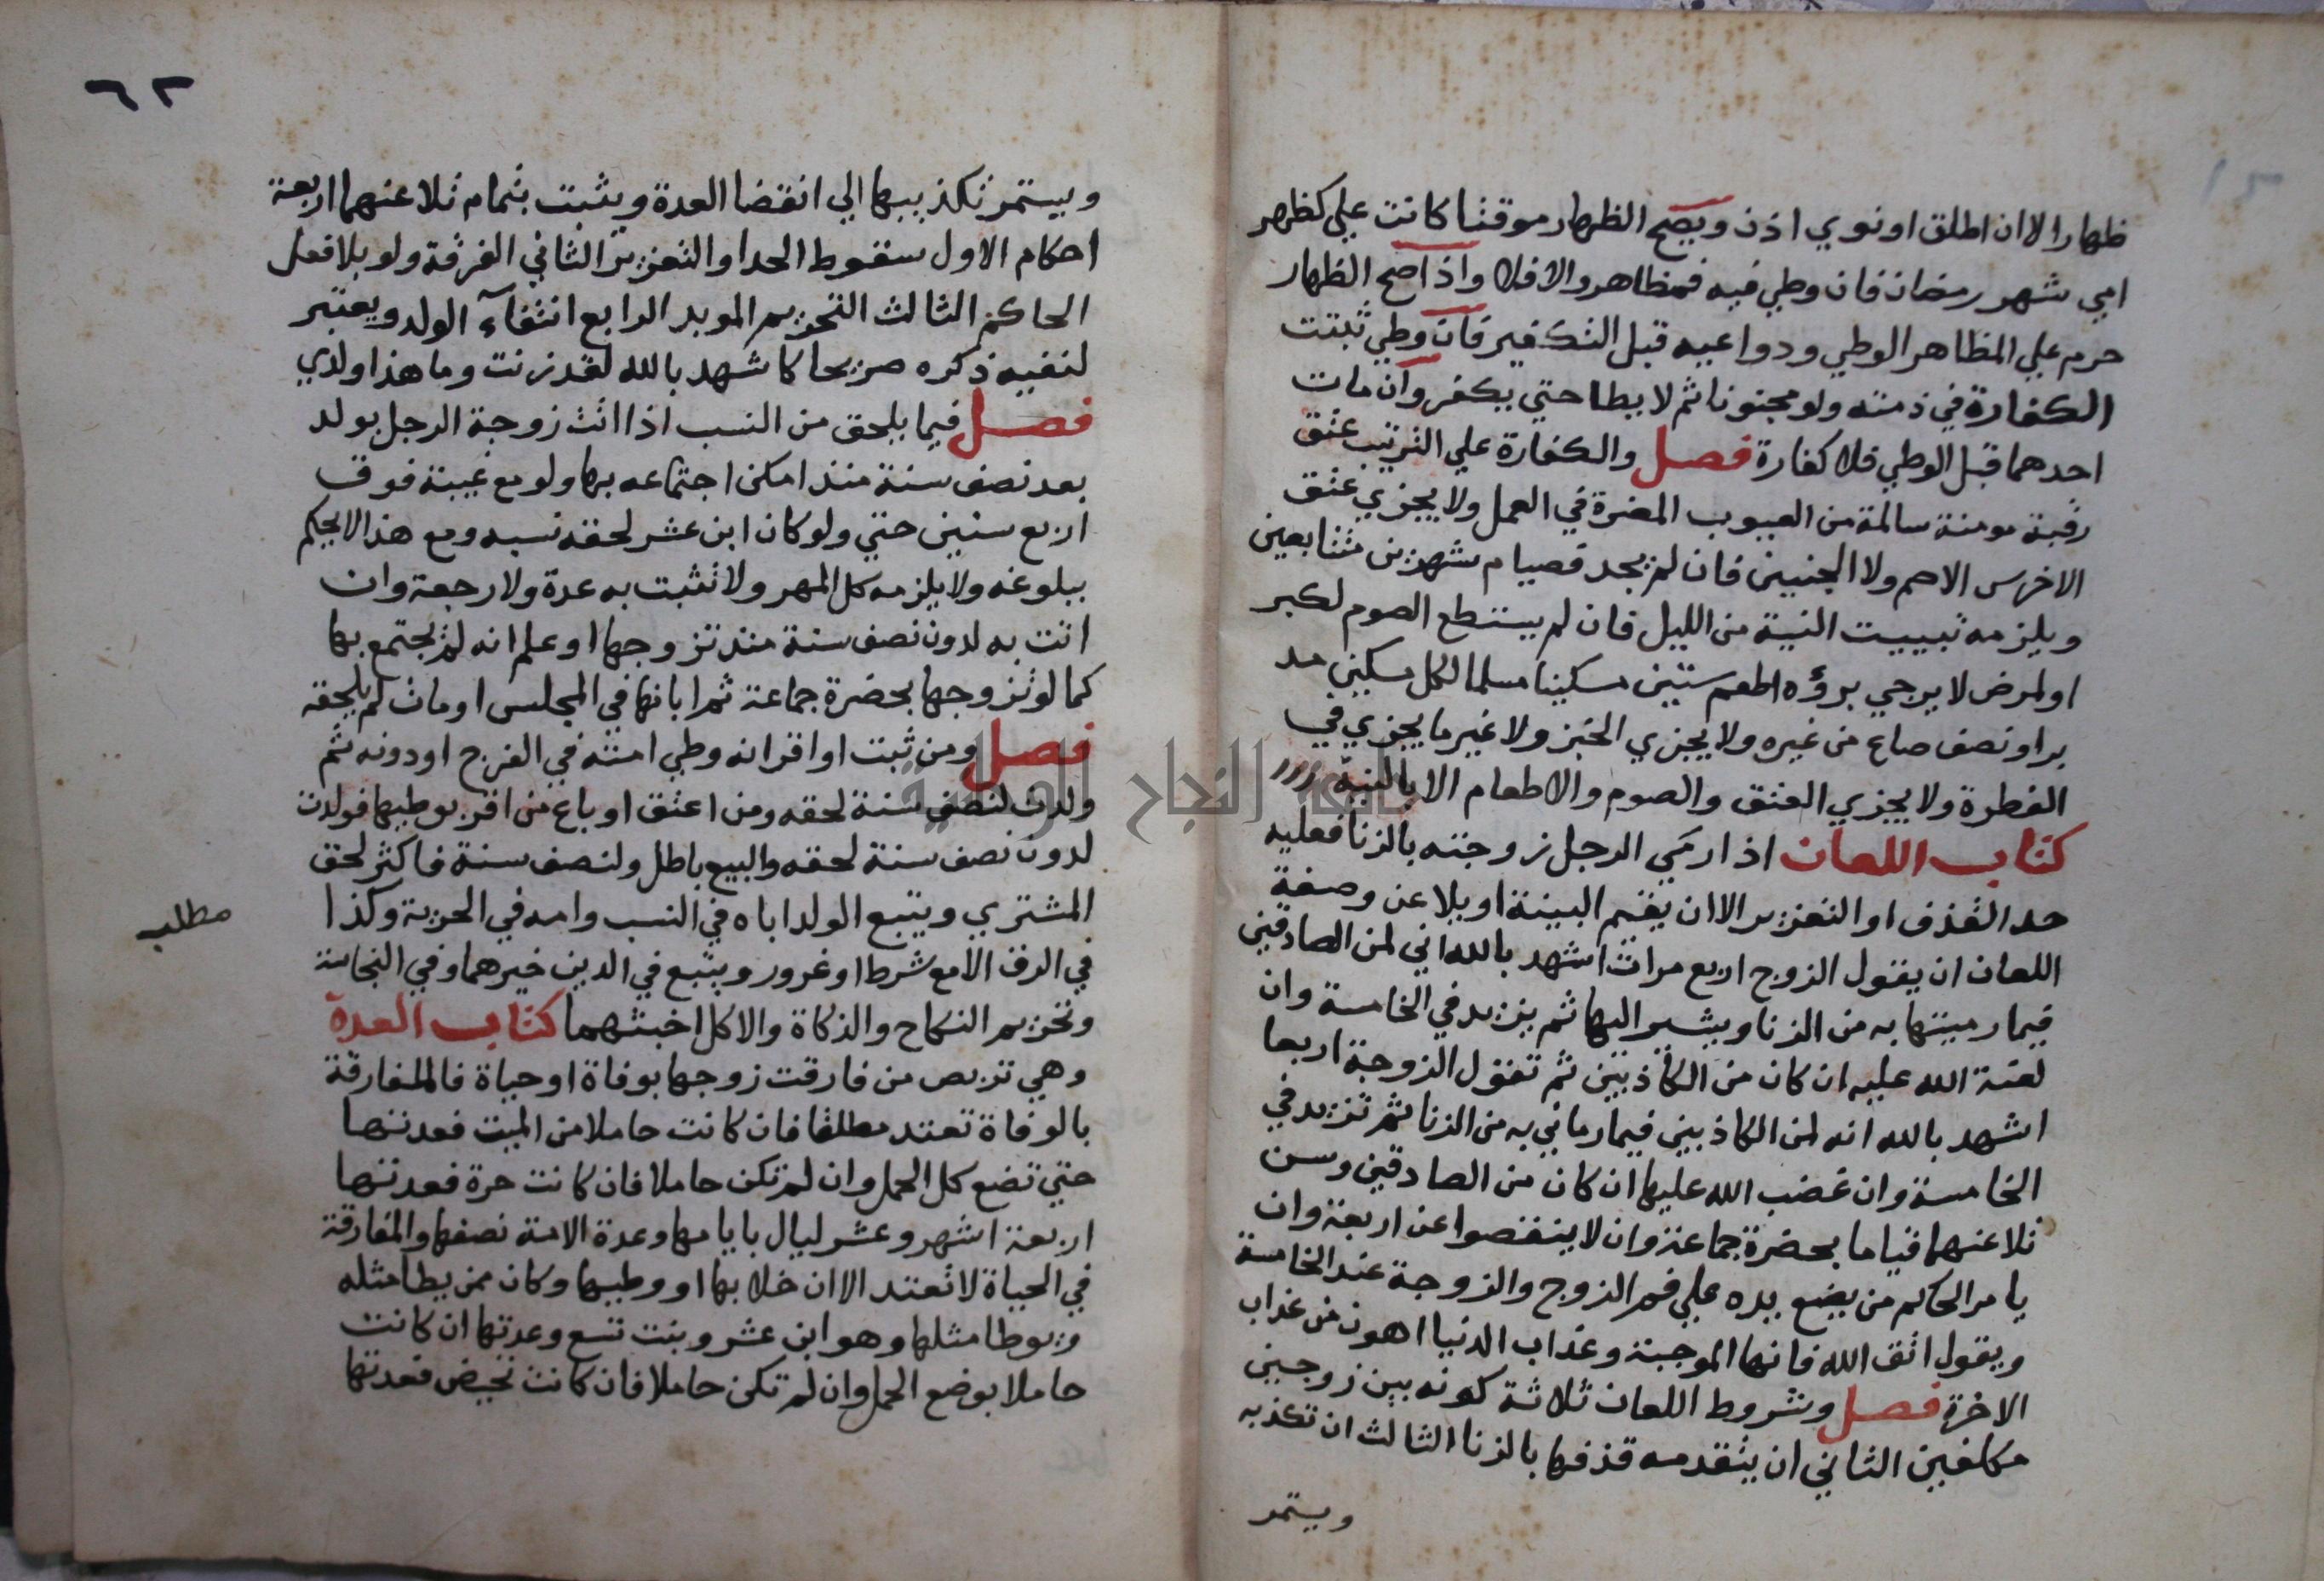 ظهارا الا ان اطلق او نوي اذن ويصح الظهار موقتا كانت علي كظهر
امي شهر رمضان فان وطي فيه فمظاهر والا فلا واذا صح الظهار
حرم علي المظاهر الوطي ودواعيه قبل التكفير فان وطي ثبتت
الكفارة في ذمته ولو مجنونا ثم لا يطا حتي يكفر وان مات
احدهما قبل الوطي فلا كفارة فصل والكفارة علي الترتيب عتق
رقبة مومنة سالمة من العيوب المضرة في العمل ولا يجزي عتق
الاخرس الاصم ولا الجنين فان لم يجد فصيام شهرين متتابعين
ويلزمه تبييت النية من الليل فان لم يستطع الصوم لكبر
او لمرض لا يرجي برؤه اطعم ستين مسكينا مسلما لكل مسكين مد
برا ونصف صاع من غيره ولا يجزي الخبز ولا غير ما يجزي في
الفطرة ولا يجزي العتق والصوم والاطعام الا بالنية
كتاب اللعان اذا رمي الرجل زوجته بالزنا فعليه
حد القذف او التعزير الا ان يقم البينة او يلاعن وصفة
اللعان ان يقول الزوج اربع مرات اشهد بالله اني لمن الصادقين
فيما رميتها به من الزنا ويشير اليها ثم يزيد في الخامسة وان
لعنة الله عليه ان كان من الكاذبين ثم تقول الزوجة اربعا
اشهد بالله انه لمن الكاذبين فيما رماني به من الزنا ثم تزيد في
الخامسة وان غضب الله عليها ان كان من الصادقين وسن
تلاعنهما قياما بحضرة جماعة وان لا ينقصوا عن اربعة وان
يامر الحاكم من يضع يده علي فم الزوج والزوجة عند الخامسة
ويقول اتق الله فانها الموجبة وعذاب الدنيا اهون من عذاب
الاخرة فصل وشروط اللعان ثلاثة كونه بين زوجين
مكلفين الثاني ان يتقدمه قذفها بالزنا الثالث ان تكذبه
ويستمر
٦٢
ويستمر تكذيبها الي انقضا العدة ويثبت بتمام تلاعنهما اربعة
احكام الاول سقوط الحد او التعزير الثاني الفرقة ولو بلا فعل
الحاكم الثالث التحريم الموبد الرابع انتفآء الولد ويعتبر
لنفيه ذكره صريحا كاشهد بالله لقد زنت وما هذا ولدي
فصل فيما يلحق من النسب اذا اتت زوجة الرجل بولد
بعد نصف سنة منذ امكن اجتماعه بها ولو مع غيبة فوق
اربع سنين حتي ولو كان ابن عشر لحقه نسبه ومع هذا لا يحكم
ببلوغه ولا يلزمه كل المهر ولا تثبت به عدة ولا رجعة وان
اتت به لدون نصف سنة منذ تزوجها او علم انه لم يجتمع بها
كما لو تزوجها بحضرة جماعة ثم ابانها في المجلس او مات لم يلحقه
فصل ومن ثبت او اقر انه وطي امته في الفرج او دونه ثم
ولدت لنصف سنة لحقه ومن اعتق او باع من اقر بوطيها فولدت
لدون نصف سنة لحقه والبيع باطل ولنصف سنة فاكثر لحق
المشتري ويتبع الولد اباه في النسب وامه في الحرية وكذا
مطلب
في الرق الا مع شرط او غرور ويتبع في الدين خيرهما وفي النجاسة
وتحريم النكاح والذكاة والاكل اخبثهما كتاب العدة
وهي تربص من فارقت زوجها بوفاة او حياة فالمفارقة
بالوفاة تعتد مطلقا فان كانت حاملا من الميت فعدتها
حتي تضع كل الحمل وان لم تكن حاملا فان كانت حرة فعدتها
اربعة اشهر وعشر ليال بايامها وعدة الامة نصفها والمفارقة
في الحياة لا تعتد الا ان خلا بها او وطيها وكان ممن يطا مثله
ويوطا مثلها وهو ابن عشر وبنت تسع وعدتها ان كانت
حاملا بوضع الحمل وان لم تكن حاملا فان كانت تحيض فعدتها
جامعة النجاح الوطنية